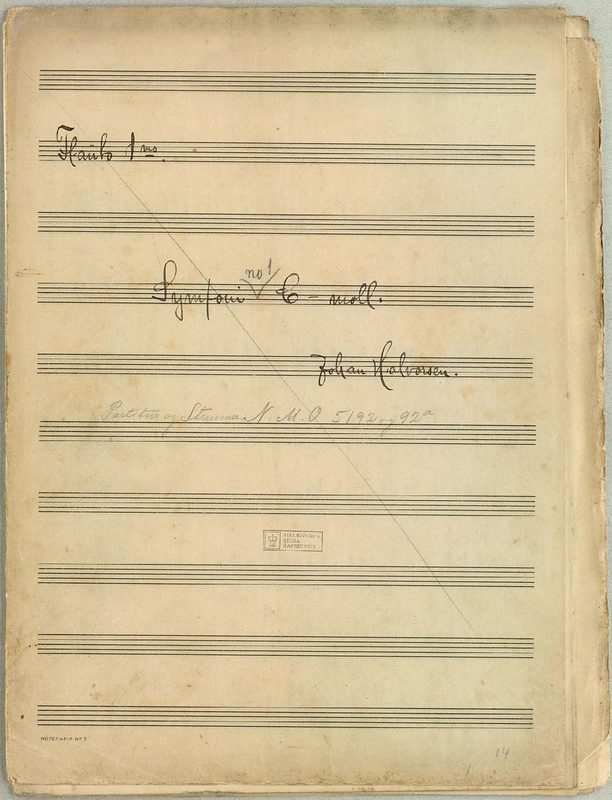 Flauto 1mo.
Symfoni no 1 C-moll.
Johan Halvorsen.
Partitur og Stemmer N. M. O. 5192 og 92a
BIBLIOTHECA
REGIA
HAFNIENSIS
NOTEPAPIR No 3
14